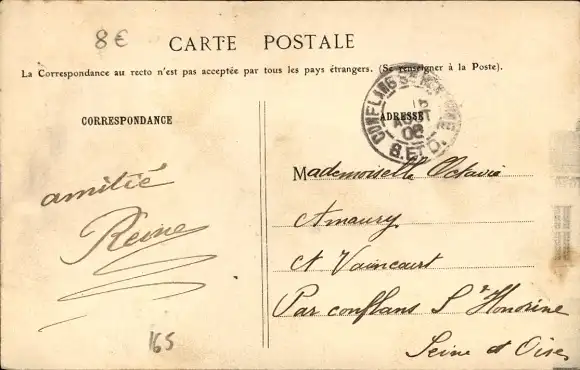 8€
CARTE POSTALE
La Correspondance au recto n'est pas acceptée par tous les pays étrangers. (Se renseigner à la Poste).
CORRESPONDANCE
amitié
Reine
165
ADRESSE
CONFLANS Ste HONORINE
AOUT
08
S. ET O.
Mademoiselle Octavie
Amaury
A Vaincourt
Par conflans Ste Honorine
Seine et Oise